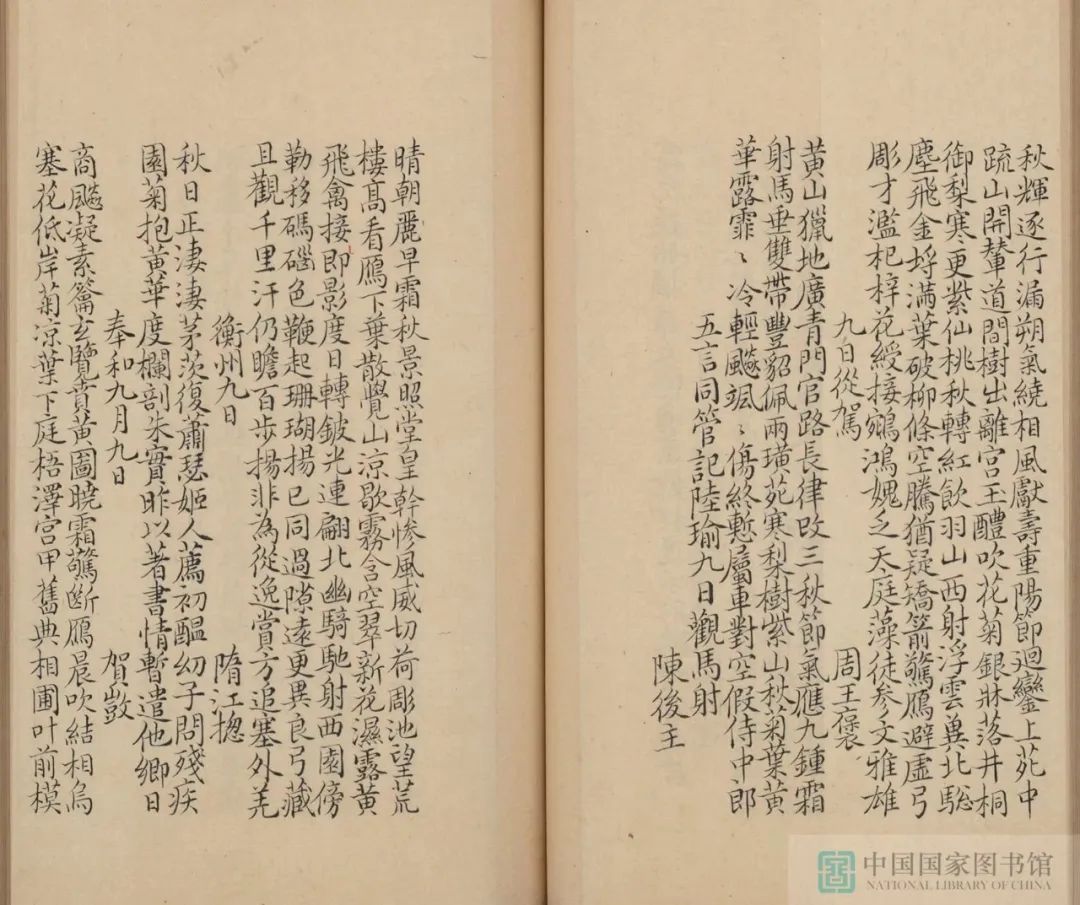 秋輝逐行漏朔氣繞相風獻壽重陽節迴鑾上苑中
疏山開輦道間樹出離宮玉醴吹花菊銀牀落井桐
御梨寒更紫仙桃秋轉紅飲羽山西射浮雲兾北驄
塵飛金埒滿葉破柳條空騰猶疑矯箭驚鴈避虛弓
彫才濫杞梓花綬接鵷鴻媿乏天庭藻徒參文雅雄
九日從駕
周王褒
黃山獵地廣青門官路長律改三秋節氣應九鍾霜
射馬垂雙帶豐貂佩兩璜苑寒梨樹紫山秋菊葉黃
華露霏〻冷輕飈颯〻傷終慙屬車對空假侍中郎
五言同管記陸瑜九日觀馬射
陳後主
晴朝麗早霜秋景照堂皇幹慘風威切荷彫池望荒
樓高看鴈下葉散覺山涼歇霧含空翠新花濕露黃
飛禽接即影度日轉鈹光連翩北幽騎馳射西園傍
勒移碼碯色鞭起珊瑚揚已同過隙遠更異良弓藏
且觀千里汗仍瞻百步揚非為從逸賞方追塞外羌
衡州九日
隋江揔
秋日正淒淒茅茨復蕭瑟姬人薦初醞幼子問殘疾
園菊抱黃華度欄剖朱實昨以著書情暫遣他鄉日
奉和九月九日
賀敳
商飈凝素籥玄覽賁黃圖曉霜驚斷鴈晨吹結相烏
塞花低岸菊涼葉下庭梧澤宮甲舊典相圃叶前模
中国国家图书馆
NATIONAL LIBRARY OF CHINA